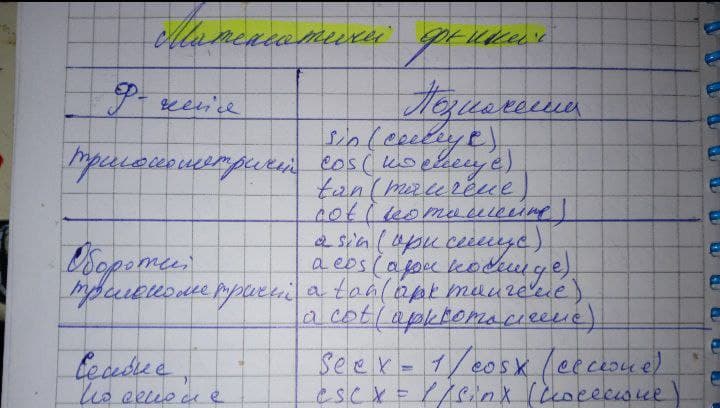 Математичні ф-нкції
Ф-нкція Позначення
тригонометричні
sin (синус)
cos (косинус)
tan (тангенс)
cot (котангенс)
Оборотні
тригонометричні
asin (арксинус)
acos (арккосинус)
atan (арктангенс)
acot (арккотангенс)
Секанс,
косеканс
sec x = 1/cosx (секанс)
csc x = 1/sinx (косеканс)